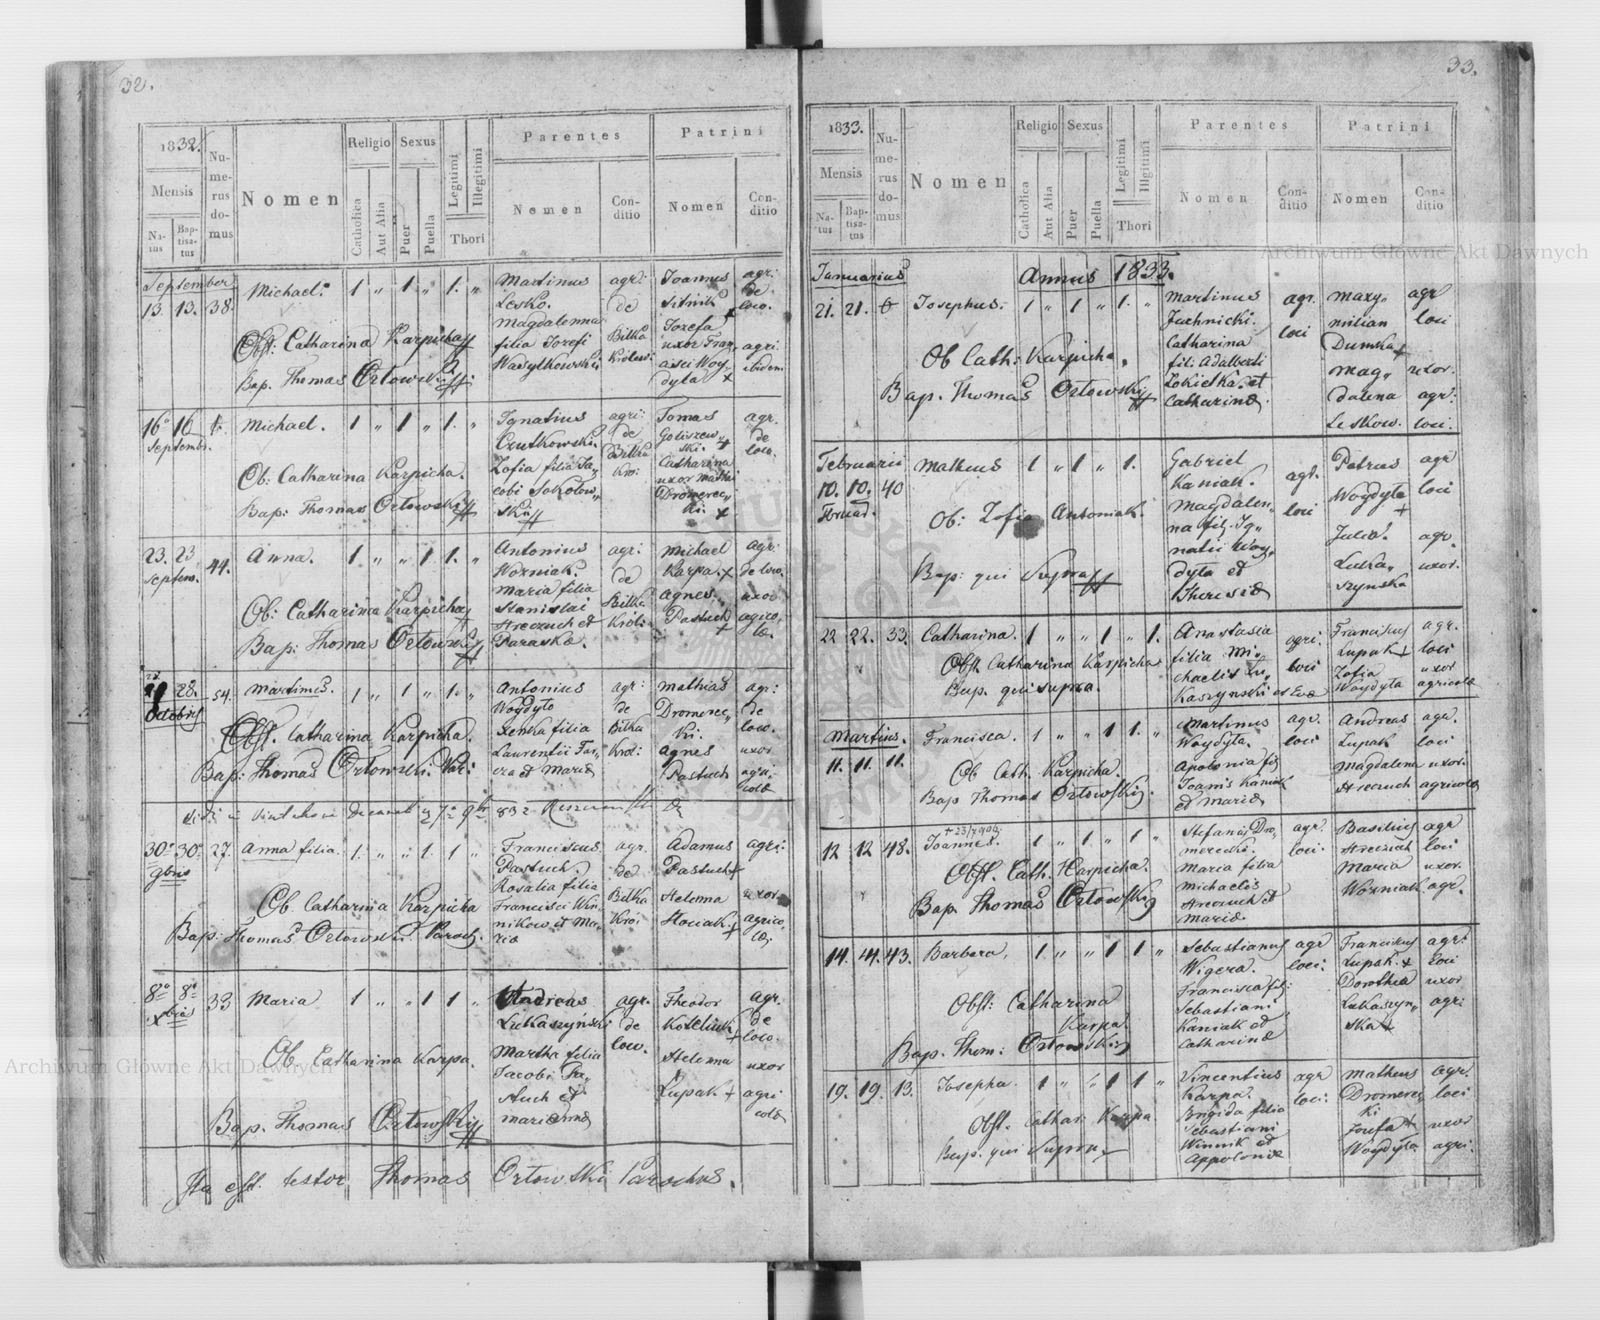 32.
1832.
Mensis
Natus
Baptisatus
Numerus domus
Nomen
Religio
Catholica
Aut Alia
Sexus
Puer
Puella
Legitimi
Illegitimi
Thori
Parentes
Nomen
Conditio
Patrini
Nomen
Conditio
September
13. 13. 38. Michael. 1 „ 1 „ 1. „
Obst: Catharina Karpicha
Bap. Thomas Ortowski
Martinus
Lesko.
Magdalenna
filia Jozefi
Wasylkowski
agr:
de
Bilka
Joannes
Sitnik
Jozefa
uxor Fran„
cisci Woy„
dyla +
agr:
de
loco.
agri.
ibidem
16 16 Michael. 1 „ 1 „ 1. „
Septemb.
Ob: Catharina Karpicha.
Bap: Thomas Ortowski
Ignatius
Czutkowski.
Zofia filia Ja„
cobi Sokolow„
ski
agri:
de
Bilka
Kro:
Tomas
Goliszew„
ski. +
Catharina
uxor Mathi
Dromerec„
ki. +
agr.
de
loco.
23. 23 44. Anna. 1 „ „ 1 1. „
Septem.
Ob: Catharina Karpicha
Bap: Thomas Ortowski
Antonius
Wozniak.
Maria filia
Stanislai
Hreczuch et
Paraska.
agr:
de
Bilka
Krol:
Michael
Karpa. +
Agnes
Pastuch +
agr:
de loco.
uxor
agrico„
læ.
28. 54. Martinus. 1 „ 1 „ 1. „
Octobris
Obst. Catharina Karpicha.
Bap: Thomas Ortowski
Antonius
Woydyto
Xenka filia
Laurentii
et Mariæ
agr:
de
Bilka
Krol:
Mathias
Dromerec„
ki.
Agnes
Pastuch
agr:
de
loco.
uxor
agri:
colæ
30 30 27. Anna filia. 1. „ „ 1. 1 „
9bris
Ob Catharina Karpicha
Bap: Thomas Ortowski Paroch.
Franciscus
Pastuch.
Rosalia filia
Francisci Win„
nikow et Ma„
riæ
agr.
de
Bilka
Kro:
Adamus
Pastuch +
Helenna
agri:
uxor
agrico„
læ:
8 8 33 Maria 1 „ „ 1 1 „
Xbris
Ob Catharina Karpa.
Bap. Thomas Ortowski
Andreas
Lukaszyński
Martha filia
Jacobi
et
Mariannæ
agr.
de
loco.
Theodor
+
Helenna
Lupak +
agr.
de
loco.
uxor
agri
colæ
Ita est testor Thomas Ortowski Parochus.
33.
1833.
Mensis
Natus
Baptisatus
Numerus domus
Nomen
Religio
Catholica
Aut Alia
Sexus
Puer
Puella
Legitimi
Illgitimi
Thori
Parentes
Nomen
Conditio
Patrini
Nomen
Conditio
Januarius Annus 1833.
21. 21. 6 Josephus. 1 „ 1 „ 1. „
Ob Cath: Karpicha.
Bap. Thomas Ortowski
Martinus
Juchnicki.
Catharina
fil: Adalberti
Lokietka. et
Catharinæ.
agr.
loci
Maxy„
milian
Dumka +
Mag„
dalena
Leskow.
agr
loci
uxor.
agr:
loci.
Februarii
10. 10. 40 Matheus 1 „ 1 „ 1.
Ob: Zofia Antoniak.
Bap: qui Supra
Gabriel
Kaniak.
Magdalen„
na fil: Ig„
natii Woy„
dyta et
Theresiæ
agr.
loci
Petrus
Woydyta
+
Julia.
Luka„
szynska
agr
loci
agr.
uxor.
22 22. 33. Catharina. 1 „ „ 1 „ 1.
Obst. Catharina Karpicha
Bap. qui supra.
Anastasia
filia Mi„
chaelis Lu„
kaszynski et Evæ
agri:
loci
Franciscus
Lupak +
Zofia
Woydyta
agr.
loci
uxor
agricolæ
Martius.
11. 11. 11. Francisca. 1 „ „ 1 1. „
Ob Cath. Karpicha.
Bap Thomas Ortowski.
Martinus
Woydyta.
Apolonia fil
Joanis Kaniak
et Mariæ
agr.
loci
Andreas
Lupak
Magdalena
Hreczuch
agr.
loci
uxor.
agricolæ
12 12 48. Joannes. 1 „ „ 1 „
Obst. Cath. Karpicha.
Bap. Thomas Ortowski
Stefanus Dro„
merecki.
Maria filia
Michaelis
Hreczuch et
Mariæ
agr.
loci.
Basilius
Hreczuch
Maria
Wozniak
agr
loci
uxor.
agr.
14. 14. 43. Barbara. 1. „ „ 1 1 „
Obst: Catharina
Karpa.
Bap. Thom: Ortowski
Sebastianus
Wigera.
Francisca fil:
Sebastiani
Kaniak et
Catharinæ
agr
loci.
Franciscus
Lupak. +
Dorothea
Lukaszyn„
ska +
agr:
loci
uxor
agr:
19. 19. 13. Josepha. 1 „ „ 1 1 „
Obst. Cathar: Karpa
Bap. qui Supra
Vincentius
Karpa.
Brigida filia
Sebastiani
Winnik et
Appoloniæ
agr
loci.
Matheus
Dromerec„
ki
Jozefa +
Woydyta.
agr:
loci
uxor
agri:
Archiwum Główne Akt Dawnych
Archiwum Główne Akt Dawnych